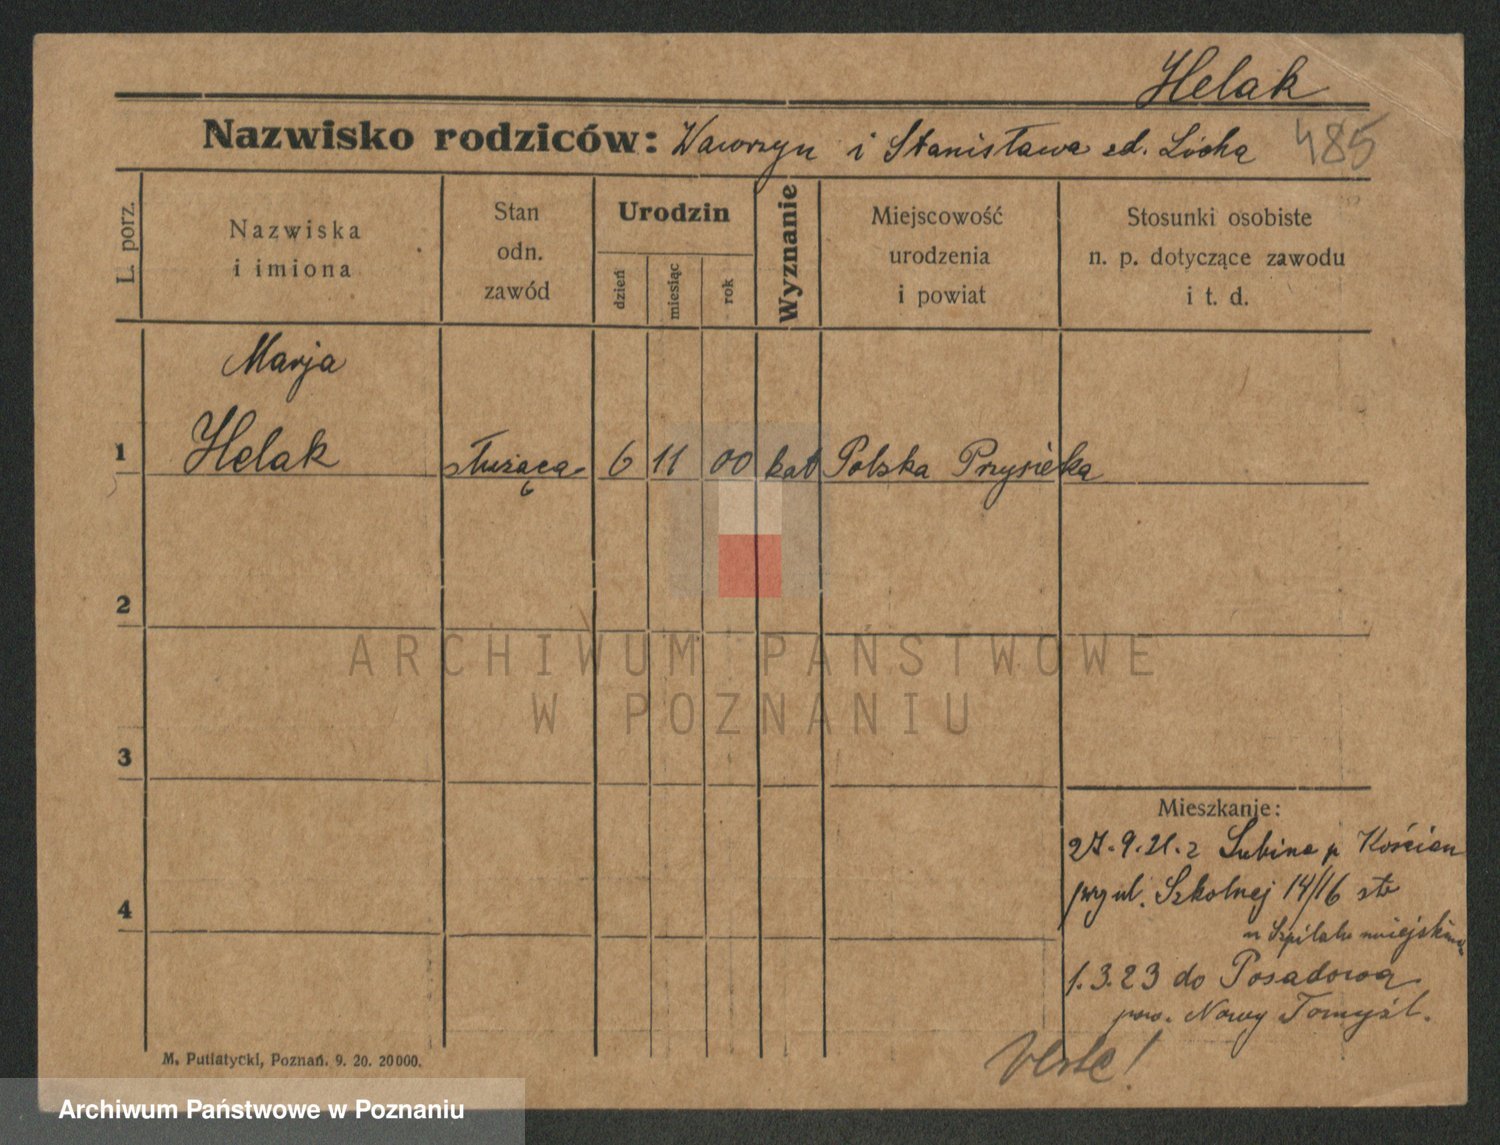 Helak
Nazwisko rodziców: Wawrzyn i Stanisława zd. Licha
485
L. porz.
Nazwiska
i imiona
Stan
odn.
zawód
Urodzin
dzień
miesiąc
rok
Wyznanie
Miejscowość
urodzenia
i powiat
Stosunki osobiste
n. p. dotyczące zawodu
i t. d.
Marja
1 Helak służąca 6 11 00 kat Polska Przysieka
2
ARCHIWUM PAŃSTWOWE
W POZNANIU
3
Mieszkanie:
27.9.21. z Lubina p Kościan
przy ul. Szkolnej 14/16 stb
4
w Szpitalu miejskim
1.3.23 do Posadowa
pow. Nowy Tomyśl.
M. Putiatycki, Poznań. 9. 20. 20000.
Archiwum Państwowe w Poznaniu